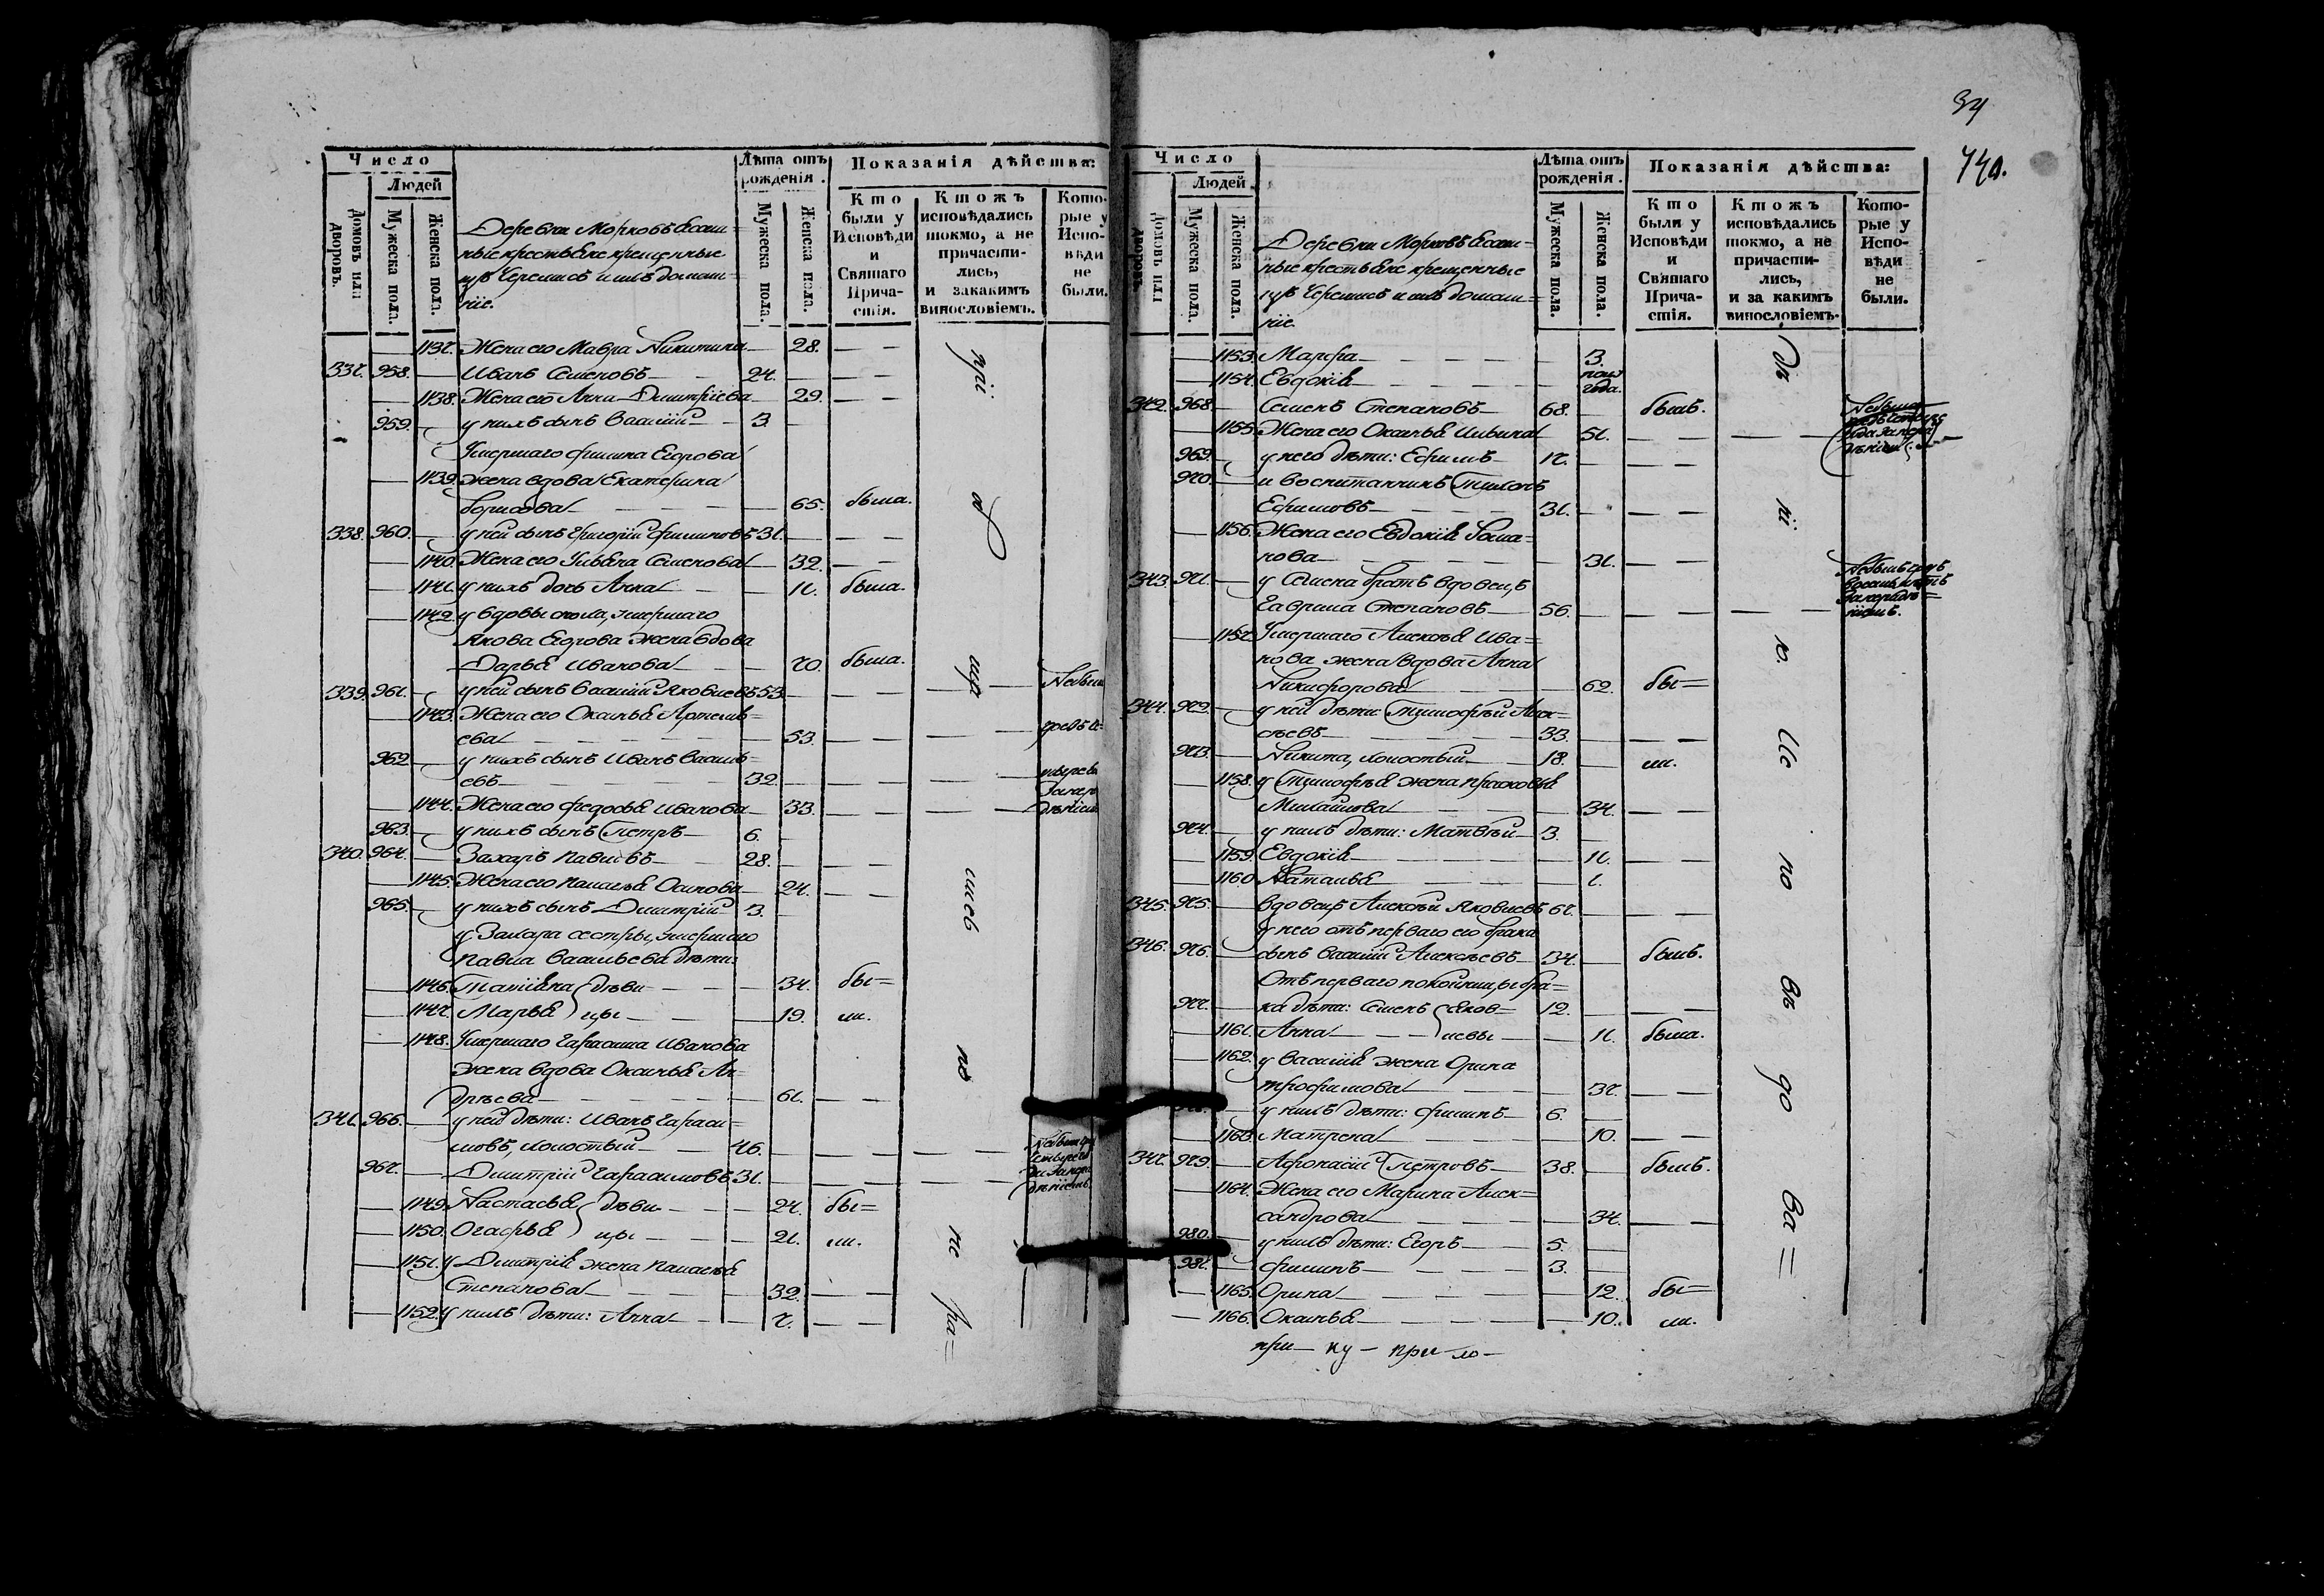 Число
Людей
Домовъ или дворовъ.
Мужеска пола.
Женска пола.
Лѣта отъ рожденія.
Мужеска пола.
Женска пола.
Показанія дѣйства:
Кто были у Исповѣди и Святаго Причастія.
Ктожъ исповѣдались токмо, а не причастились, и закакимъ винословіемъ.
Которые у Исповѣди не были.
Деревни Морковъ ясаш=
ные крестьяне крещенные
изъ Черемисъ и ихъ домаш=
ніе.
1137. Жена его Мавра Никитина 28.
337. 958. Иванъ Семеновъ 27.
1138. Жена его Анна Димитріева 29.
959. у нихъ сынъ Василий 3.
Умершаго Филипа Егорова
1139. жена вдова Екатерина
Борисова 65. была.
338. 960. у ней сынъ Григорій Филиповъ 31.
1140. Жена его Ульяна Семенова 32.
1141. у нихъ дочь Анна 11. была.
1142. у вдовы сноха, умершаго
Якова Егорова жена вдова
Дарья Иванова 70. была.
339. 961. у ней сынъ Василий Яковлевъ 53.
1143. Жена его Оксинья Артемь=
ева 53.
962. у нихъ сынъ Иванъ Василь=
евъ 32.
1144. Жена его Федосья Иванова 33.
963. у нихъ сынъ Петръ 6.
340. 964. Захаръ Павловъ 28.
1145. Жена его Палагѣя Осипова 27.
965. у нихъ сынъ Димитрий 3.
у Захара сестры, умершаго
Павла Васильева дѣти:
1146. Татіяна дѣви 34. бы=
1147. Марья цы 19. ли.
1148. Умершаго Гарасима Иванова
жена вдова Оксинья Ан=
дрѣева 61.
341. 966. у ней дѣти: Иванъ Гараси=
мовъ, холостый 46.
967. Димитрій Гарасимовъ 31.
1149. Настасья дѣви 24. бы=
1150. Огафья цы 21. ли.
1151. у Димитрія жена Палагѣя
Степанова 32.
1152. у нихъ дѣти: Анна 7.
34
Число
Людей
Домовъ или дворовъ.
Мужеска пола.
Женска пола.
Лѣта отъ рожденія.
Мужеска пола.
Женска пола.
Показанія дѣйства:
Кто были у Исповѣди и Святаго Причастія.
Ктожъ исповѣдались токмо, а не причастились, и за какимъ винословіемъ.
Которые у Исповѣди не были.
Деревни Морковъ ясаш=
ные крестьяне крещенные
изъ Черемисъ и ихъ домаш=
ніе.
1153. Марфа 3.
1154. Евдокія пол года.
342. 968. Семенъ Степановъ 68. былъ.
1155. Жена его Оксинья Ильина 51.
969. у него дѣти: Ефимъ 17.
970. и воспитанникъ Тихонъ
Ефимовъ 31.
1156. Жена его Евдокія Рома=
нова 31.
343. 971. у Семена братъ вдовецъ
Гаврила Степановъ 56.
1157. Умершаго Алексѣя Ива=
нова жена вдова Анна
Никифорова 62. бы=
344. 972. у ней дѣти Тимофѣй Алек=
сѣевъ 33.
973. Никита, холостый 18. ли.
1158. у Тимофѣя жена Прасковья
Михайлова 34.
974. у нихъ дѣти: Матвѣй 3.
1159. Евдокія 11.
1160. Наталья 1.
345. 975. вдовецъ Алексѣй Яковлевъ 67.
у него отъ перваго его брака
346. 976. сынъ Василий Алексѣевъ 34. былъ.
Отъ перваго покойницы бра=
977. ка дѣти: Семенъ Яков= 12.
1161. Анна левы 11. была.
1162. у Василия жена Орина
Трофимова 37.
у нихъ дѣти: Филипъ 6.
1163. Матрена 10.
347. 979. Афонасий Петровъ 38. былъ.
1164. Жена его Марина Алек=
сандрова 34.
980. у нихъ дѣти: Егоръ 5.
981. Филипъ 3.
1165. Орина 12. бы=
1166. Оксинья 10. ли.